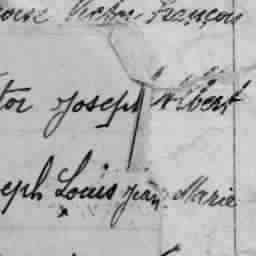 Victor François
tor Joseph Albert
eph Louis Jean Marie